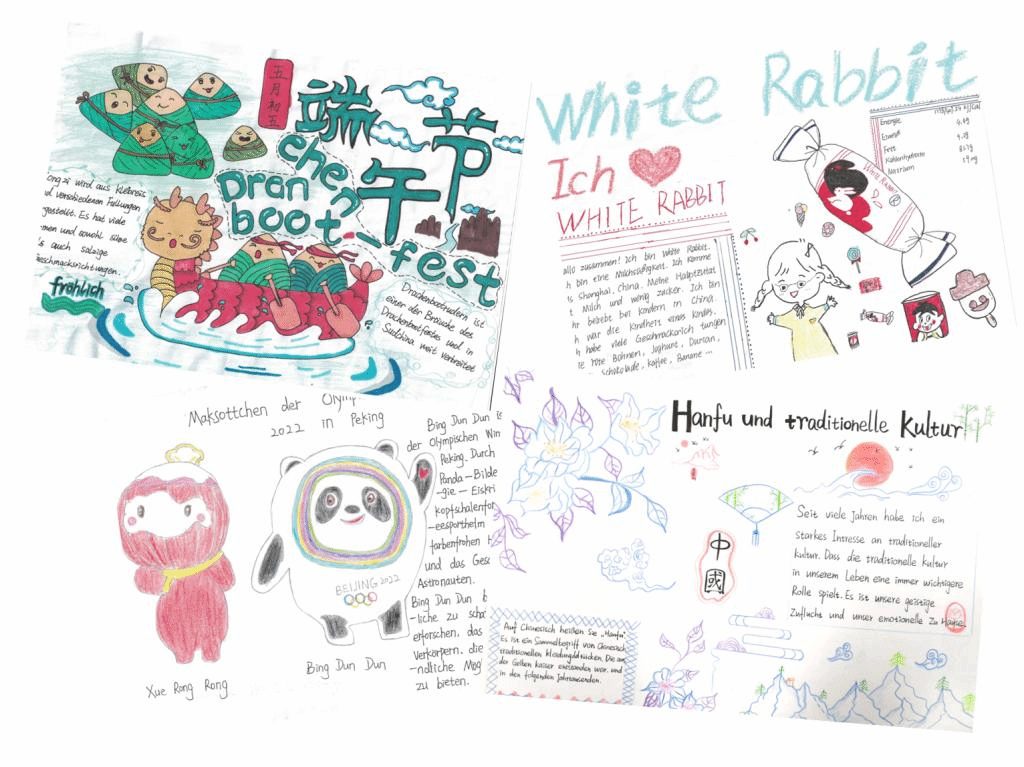 五月初五
端午节
Drachen
boot-fest
ongzi wird aus Klebreis
d verschiedenen Füllungen
gestellt. Es hat viele
men und sowohl süße
s auch salzige
eschmacksrichtungen.
fröhlich
Drachenbootrudern ist
einer der Bräuche des
Drachenbootfestes und in
Südchina weit verbreitet
White Rabbit
Ich
WHITE RABBIT
Energie
Eiweiß
Fett
Kohlenhydrate
Natrium
White Rabbit
allo zusammen! Ich bin White Rabbit.
h bin eine Milchsüßigkeit. Ich komme
s Shanghai, China. Meine Hauptzutat
t Milch und wenig zucker. Ich bin
hr beliebt bei Kindern in China.
h war die Kindheit eines Kindes.
h habe viele Geschmacksrich tungen
e rote Bohnen, Joghurt, Durian,
Schokolade, Kaffee, Banane ...
Maksottchen der Olymp
2022 in Peking
BEIJING 2022
Xue Rong Rong
Bing Dun Dun
Bing Dun Dun is
der Olympischen Win
Peking. Durch
Panda-Bilde
-gie-Eiskri
kopfschalenfor
-eesporthelm
farbenfrohen
und das Ges
Astronauten.
Bing Dun Dun
-liche zu scha
erforschen, das
verkörpern, die
-ndliche Mög
zu bieten.
Hanfu und traditionelle Kultur
中國
Seit viele Jahren habe ich ein
starkes Intresse an traditioneller
Kultur. Dass die traditionelle Kultur
in unserem Leben eine immer wichtigere
Rolle spielt. Es ist unsere geistige
Zuflucht und unser emotionelle Zu Hause.
Auf Chinesisch heißen Sie „Hanfu“.
Es ist ein Sammelbegriff von Chinesisch
traditionellen kleidungdstücken. Die am
der Gelben Kaiser entstanden war, und
in den folgenden Jahrtausenden.